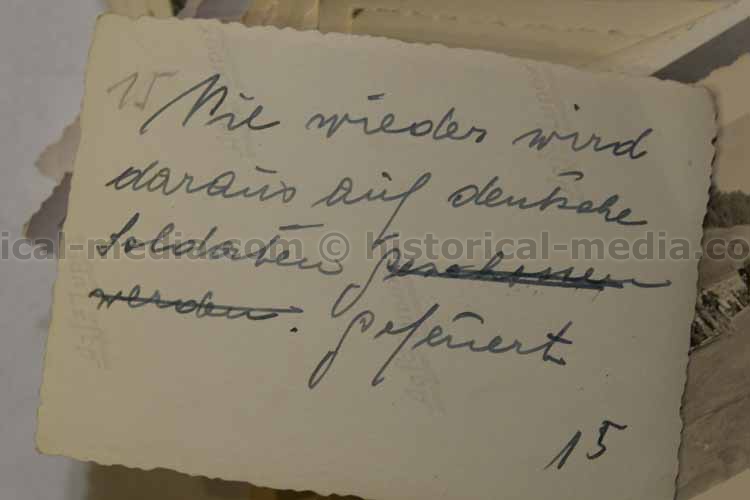 15
Nie wieder wird
daraus auf deutsche
Soldaten geschossen
werden. gefeuert
15
historical-media.com © historical-media.com